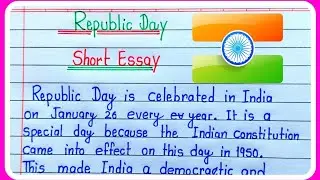 Republic Day
Short Essay
Republic Day is celebrated in India
on January 26 every year. It is a
special day because the Indian constitution
came into effect on this day in 1950.
This made India a democratic and